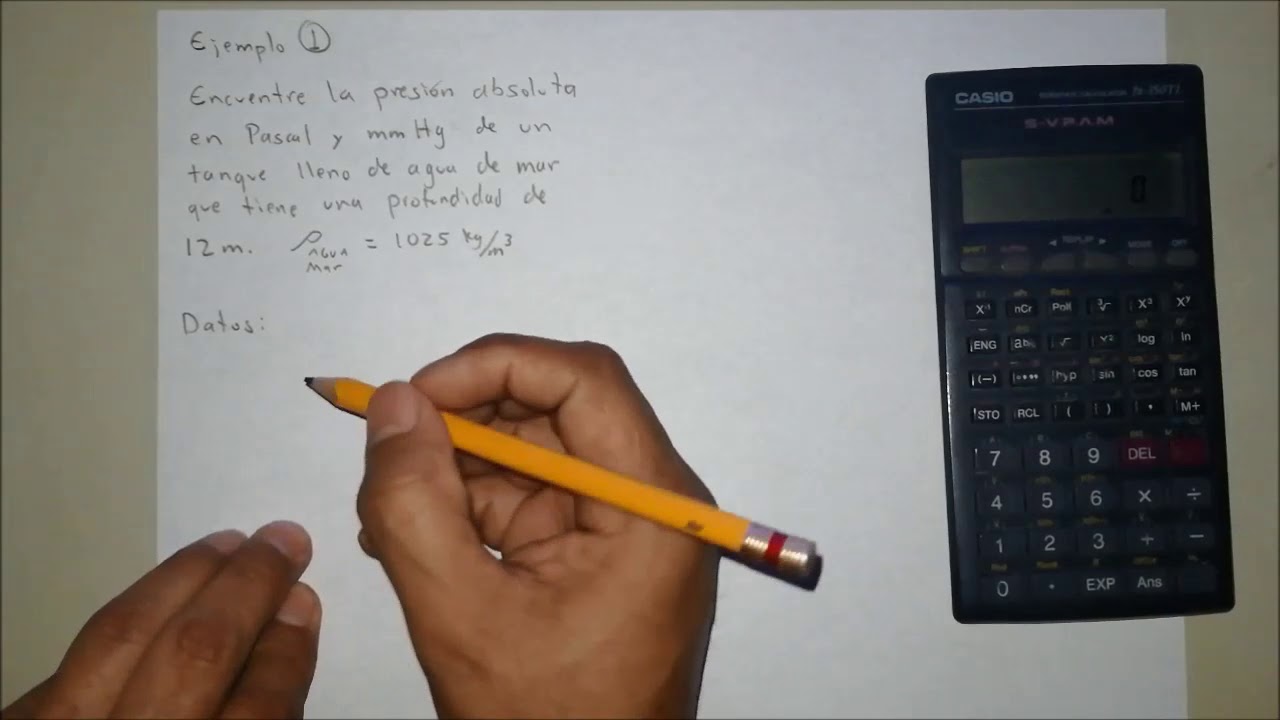 Ejemplo ①
Encuentre la presión absoluta
en Pascal y mmHg de un
tanque lleno de agua de mar
que tiene una profundidad de
12 m. ρ AGUA Mar = 1025 kg/m³
Datos:
CASIO fx-350TL
S-V.P.A.M.
0
SHIFT REPLAY MODE
X-1 nCr Pol( ³√ X³ Xʸ
ENG √ log ln
(−) hyp sin cos tan
STO RCL ( ) , M+
7 8 9 DEL
4 5 6 × ÷
1 2 3 + −
0 . EXP Ans